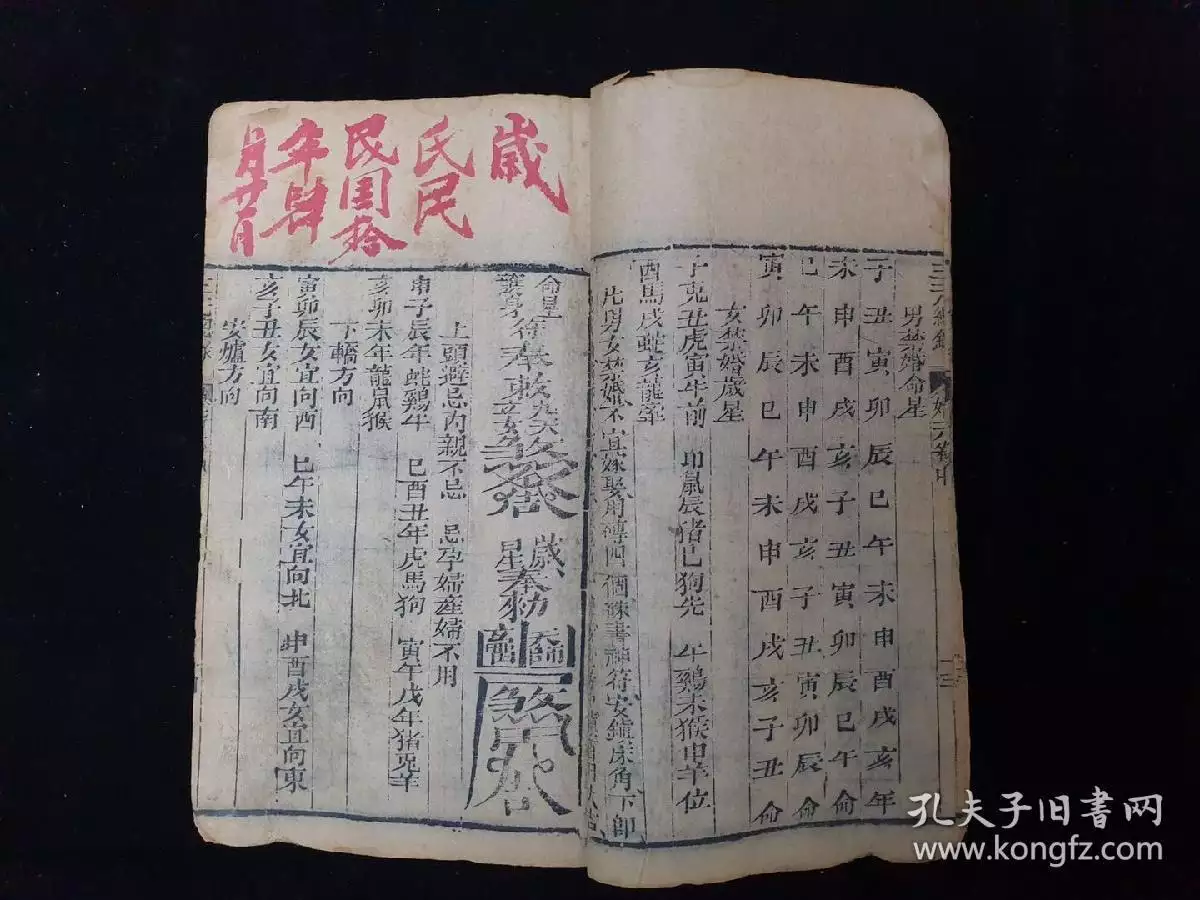 男禁婚命星
子丑寅卯辰巳午未申酉戌亥年
未申酉戌亥子丑寅卯辰巳午命
巳午未申酉戌亥子丑寅卯辰命
寅卯辰巳午未申酉戌亥子丑命
女禁婚歲星
子兎丑虎寅牛前 卯鼠辰猪巳狗先 午鷄未猴申羊位
酉馬戌蛇亥龍牽
此男女禁婚不宜嫁娶用 四個硃書神符安鎮床角下即
歲
氏民
民国拾
年肆
月廿
奉
歲星奉勅
上頭避忌內親不忌 忌孕婦産婦不用
申子辰年蛇鷄牛 巳酉丑年虎馬狗 寅午戌年猪兎羊
亥卯未年龍鼠猴
下轎方向
寅卯辰女宜向西 巳午未女宜向北 申酉戌女宜向東
亥子丑女宜向南
安爐方向
孔夫子旧書网
www.kongfz.com